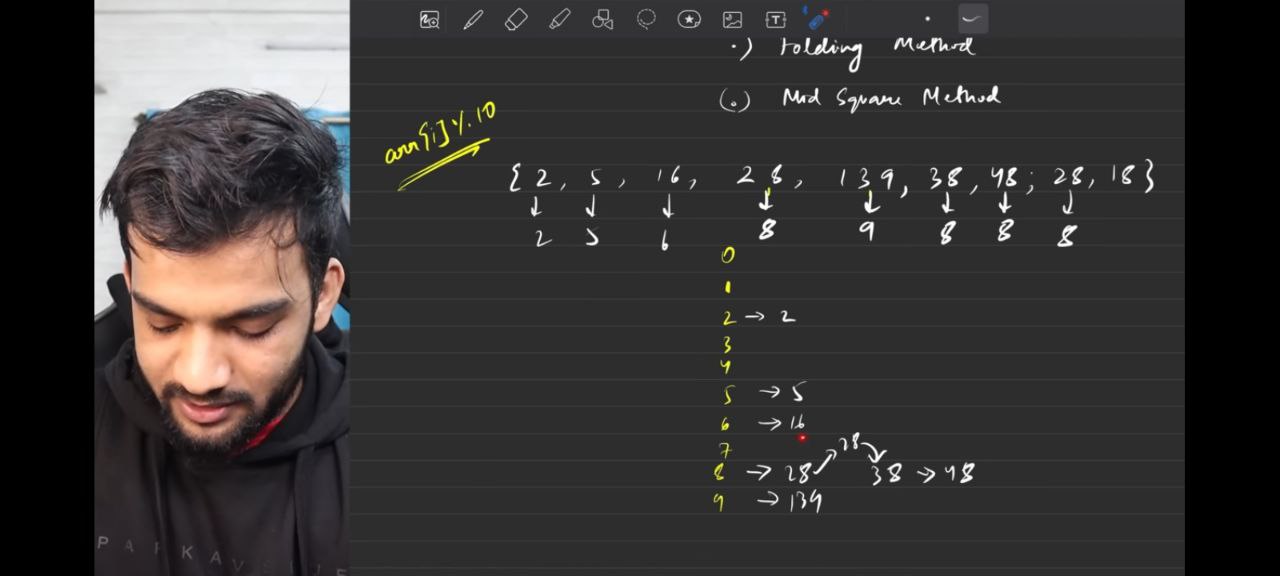 ·) Folding Method
(.) Mid Square Method
arr[i]%10
{2, 5, 16, 28, 139, 38, 48, 28, 18}
↓ ↓ ↓ ↓ ↓ ↓ ↓ ↓
2 5 6 8 9 8 8 8
0
1
2 → 2
3
4
5 → 5
6 → 16
7
8 → 28 → 28 → 38 → 48
9 → 139